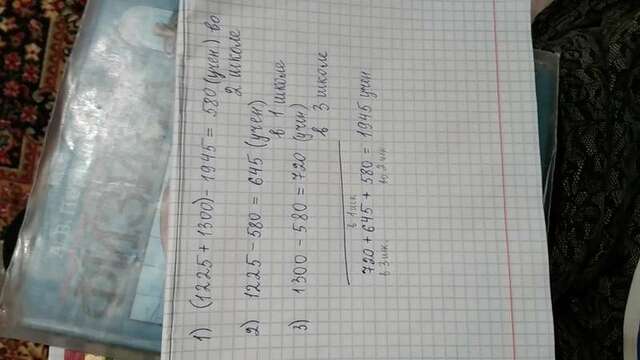 А.В. Пё
1) (1225 + 1300) - 1945 = 580 (учен.) во
2 школе
2) 1225 - 580 = 645 (учен)
в 1 школе
3) 1300 - 580 = 720 (учен)
в 3 школе
в 1 шк.
720 + 645 + 580 = 1945 учен.
в 3 шк. во 2 шк.